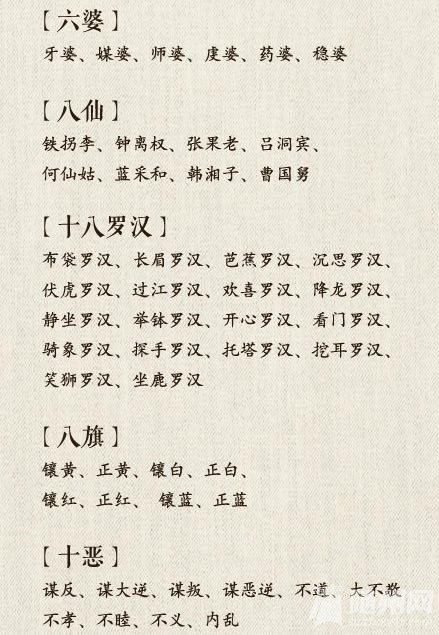 【六婆】
牙婆、媒婆、师婆、虔婆、药婆、稳婆
【八仙】
铁拐李、钟离权、张果老、吕洞宾、
何仙姑、蓝采和、韩湘子、曹国舅
【十八罗汉】
布袋罗汉、长眉罗汉、芭蕉罗汉、沉思罗汉、
伏虎罗汉、过江罗汉、欢喜罗汉、降龙罗汉、
静坐罗汉、举钵罗汉、开心罗汉、看门罗汉、
骑象罗汉、探手罗汉、托塔罗汉、挖耳罗汉、
笑狮罗汉、坐鹿罗汉
【八旗】
镶黄、正黄、镶白、正白、
镶红、正红、 镶蓝、正蓝
【十恶】
谋反、谋大逆、谋叛、谋恶逆、不道、大不敬
不孝、不睦、不义、内乱